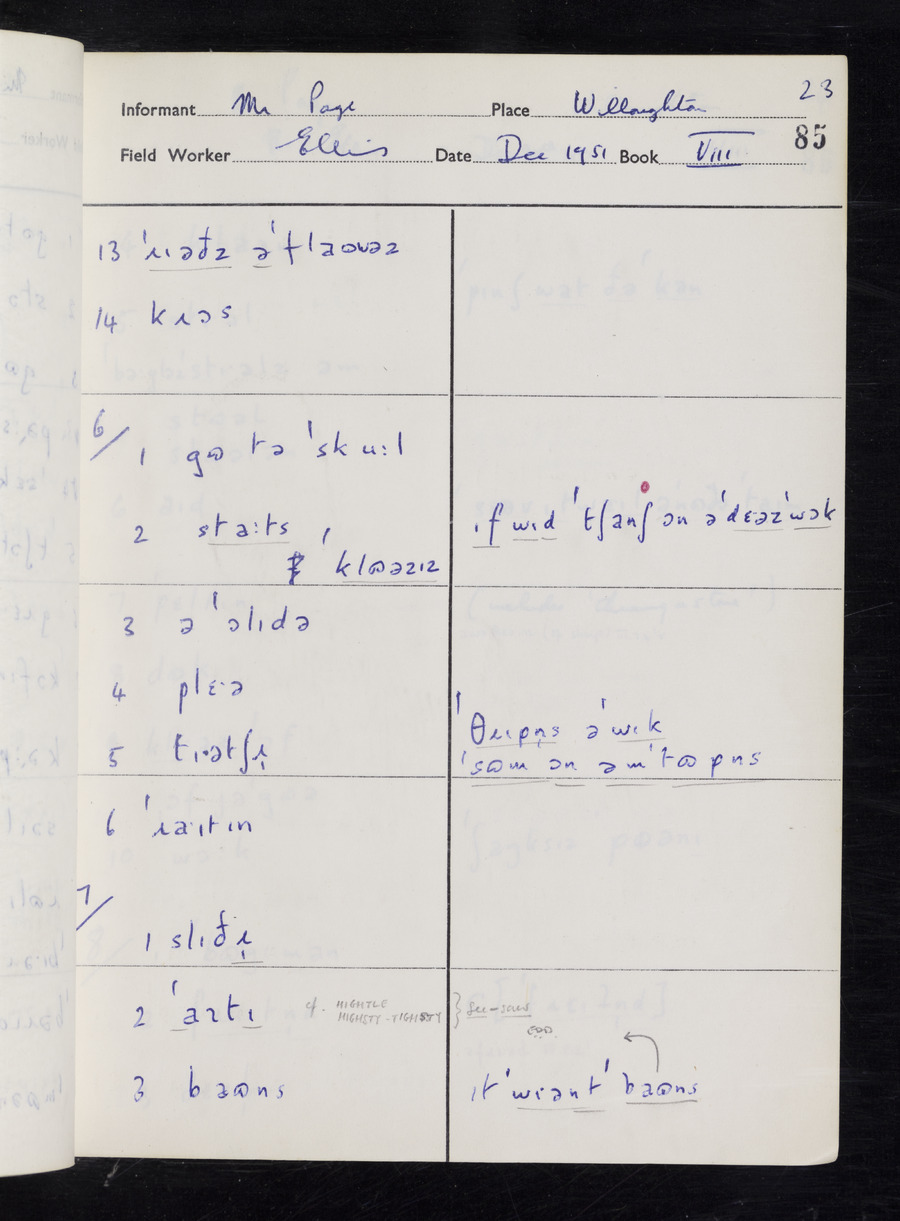 23
Informant Mr Page Place Willoughton
85
Field Worker Ellis Date Dec 1951 Book VIII
13 ˈɹɪəðz əˈflaʊwəz
14 kɹɔs
6/
1 gʊ tə ˈskuːl
2 staːts
ˈklʊəzɪz
ɪf wɪd ˈtʃanʃ ən əˈdɛəzˈwək
3 əˈɔlɪdə
4 plɛˑə
5 tɪˑətʃɪ
ˈθɹɪpn̩s əˈwɪk
ˈsʊm ən əmˈtʊpns
6 ˈɹaˑɪtɪn
7/
1 slɪðɪ
2 ˈaɪtɪ cf. HIGHTLE
HIGHTY-TIGHTY } see-saws
EDD
3 baʊns
ɪtˈwɪəntˈbaʊns